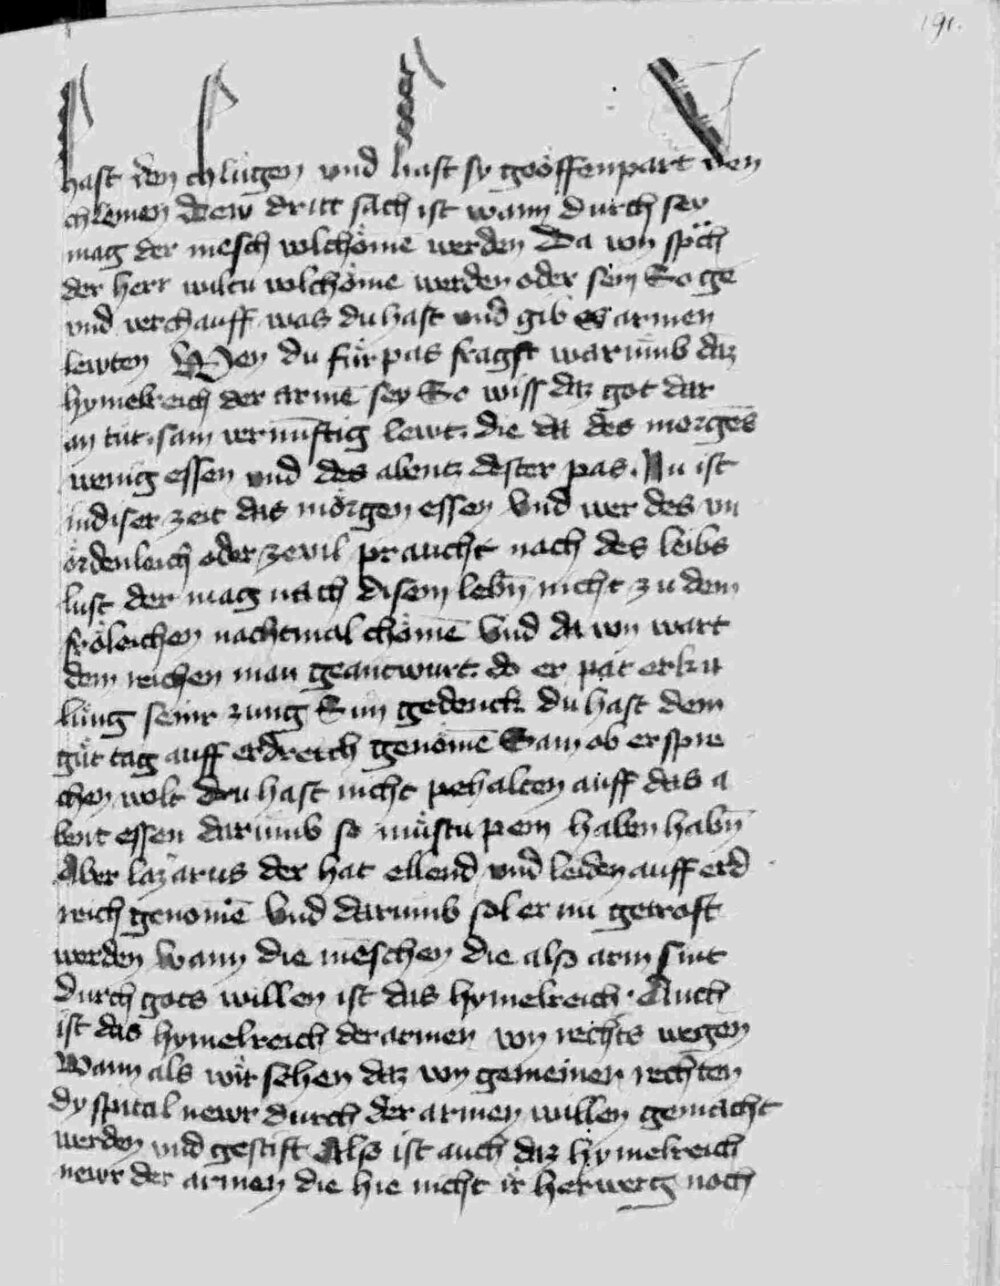 191.
hast den chlugen vnd hast sy geöffenpart den
chlainen Dew dritt sach ist wann durch sey
mag der mēsch volchömē werden Da von spͣch
der herr wiltu volchöme werden oder sein So ge
vnd verchauff was du hast vnd gib es armen
lewten Wen du fürpas fragst warumb daz
hymelreich der armē sey So wiss daz got dar
an tut sam vernunftig lewt. die da des morgēs
wenig essen vnd des abentz dester pas. Nu ist
in diser zeit das morgen essen Vnd wer des vn
ördenleich oder ze vil praucht nach des leibs
lust der mag nach disem lebn̄ nicht zu dem
fröleichen nachtmal chömē Vnd da von wart
dem reichen man geantwurt. do er pat erkü
lung seinr zung Sun gedenck du hast dem
güt tag auff erdreich genömē Sam ob er spre
chen wolt Du hast nicht pehalten auff das a
bent essen darumb so mustu pein haben habn̄
Aber lazarus der hat ellend vnd leiden auff erd
reich genomē Vnd darumb sol er nu getrost
werden Wann die mēschen die also arm sint
durch gots willen ist das hymelreich. Auch
ist das hymelreich der armen von rechts wegen
Wann als wir sehen daz von gemeinen rechten
dy spital newr durch der armen willen gemacht
werden vnd gestift Also ist auch daz hymelreich
newr der armen die hie nicht ir herwerg noch